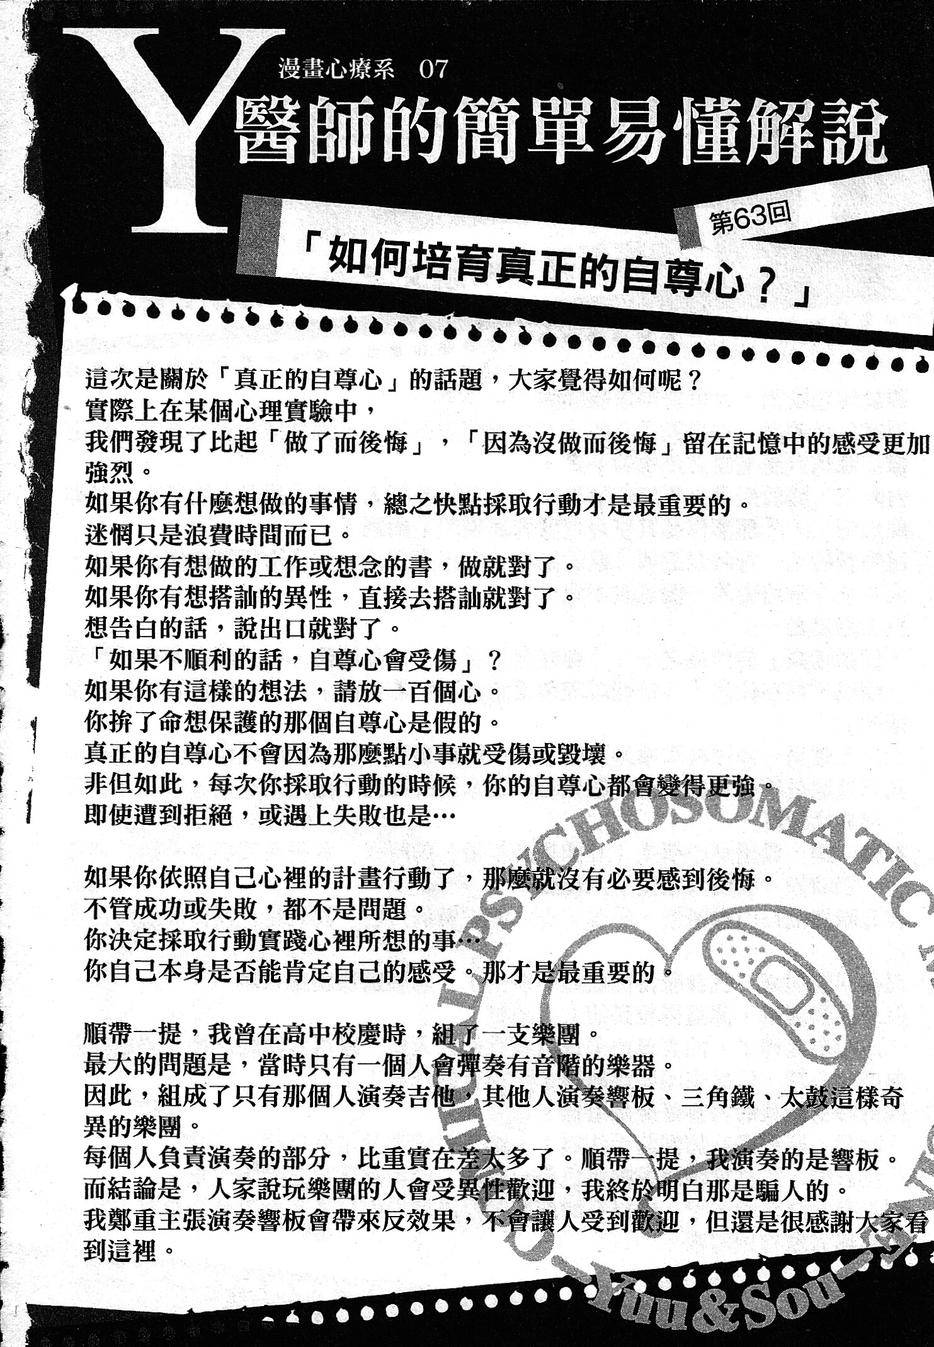 漫畫心療系 07
Y醫師的簡單易懂解說
第63回
「如何培育真正的自尊心？」
這次是關於「真正的自尊心」的話題，大家覺得如何呢？
實際上在某個心理實驗中，
我們發現了比起「做了而後悔」，「因為沒做而後悔」留在記憶中的感受更加
強烈。
如果你有什麼想做的事情，總之快點採取行動才是最重要的。
迷惘只是浪費時間而已。
如果你有想做的工作或想念的書，做就對了。
如果你有想搭訕的異性，直接去搭訕就對了。
想告白的話，說出口就對了。
「如果不順利的話，自尊心會受傷」？
如果你有這樣的想法，請放一百個心。
你拚了命想保護的那個自尊心是假的。
真正的自尊心不會因為那麼點小事就受傷或毀壞。
非但如此，每次你採取行動的時候，你的自尊心都會變得更強。
即使遭到拒絕，或遇上失敗也是…
如果你依照自己心裡的計畫行動了，那麼就沒有必要感到後悔。
不管成功或失敗，都不是問題。
你決定採取行動實踐心裡所想的事…
你自己本身是否能肯定自己的感受。那才是最重要的。
順帶一提，我曾在高中校慶時，組了一支樂團。
最大的問題是，當時只有一個人會彈奏有音階的樂器。
因此，組成了只有那個人演奏吉他，其他人演奏響板、三角鐵、太鼓這樣奇
異的樂團。
每個人負責演奏的部分，比重實在差太多了。順帶一提，我演奏的是響板。
而結論是，人家說玩樂團的人會受異性歡迎，我終於明白那是騙人的。
我鄭重主張演奏響板會帶來反效果，不會讓人受到歡迎，但還是很感謝大家看
到這裡。
COMICAL PSYCHOSOMATIC M
CINE
Yuu&Sou